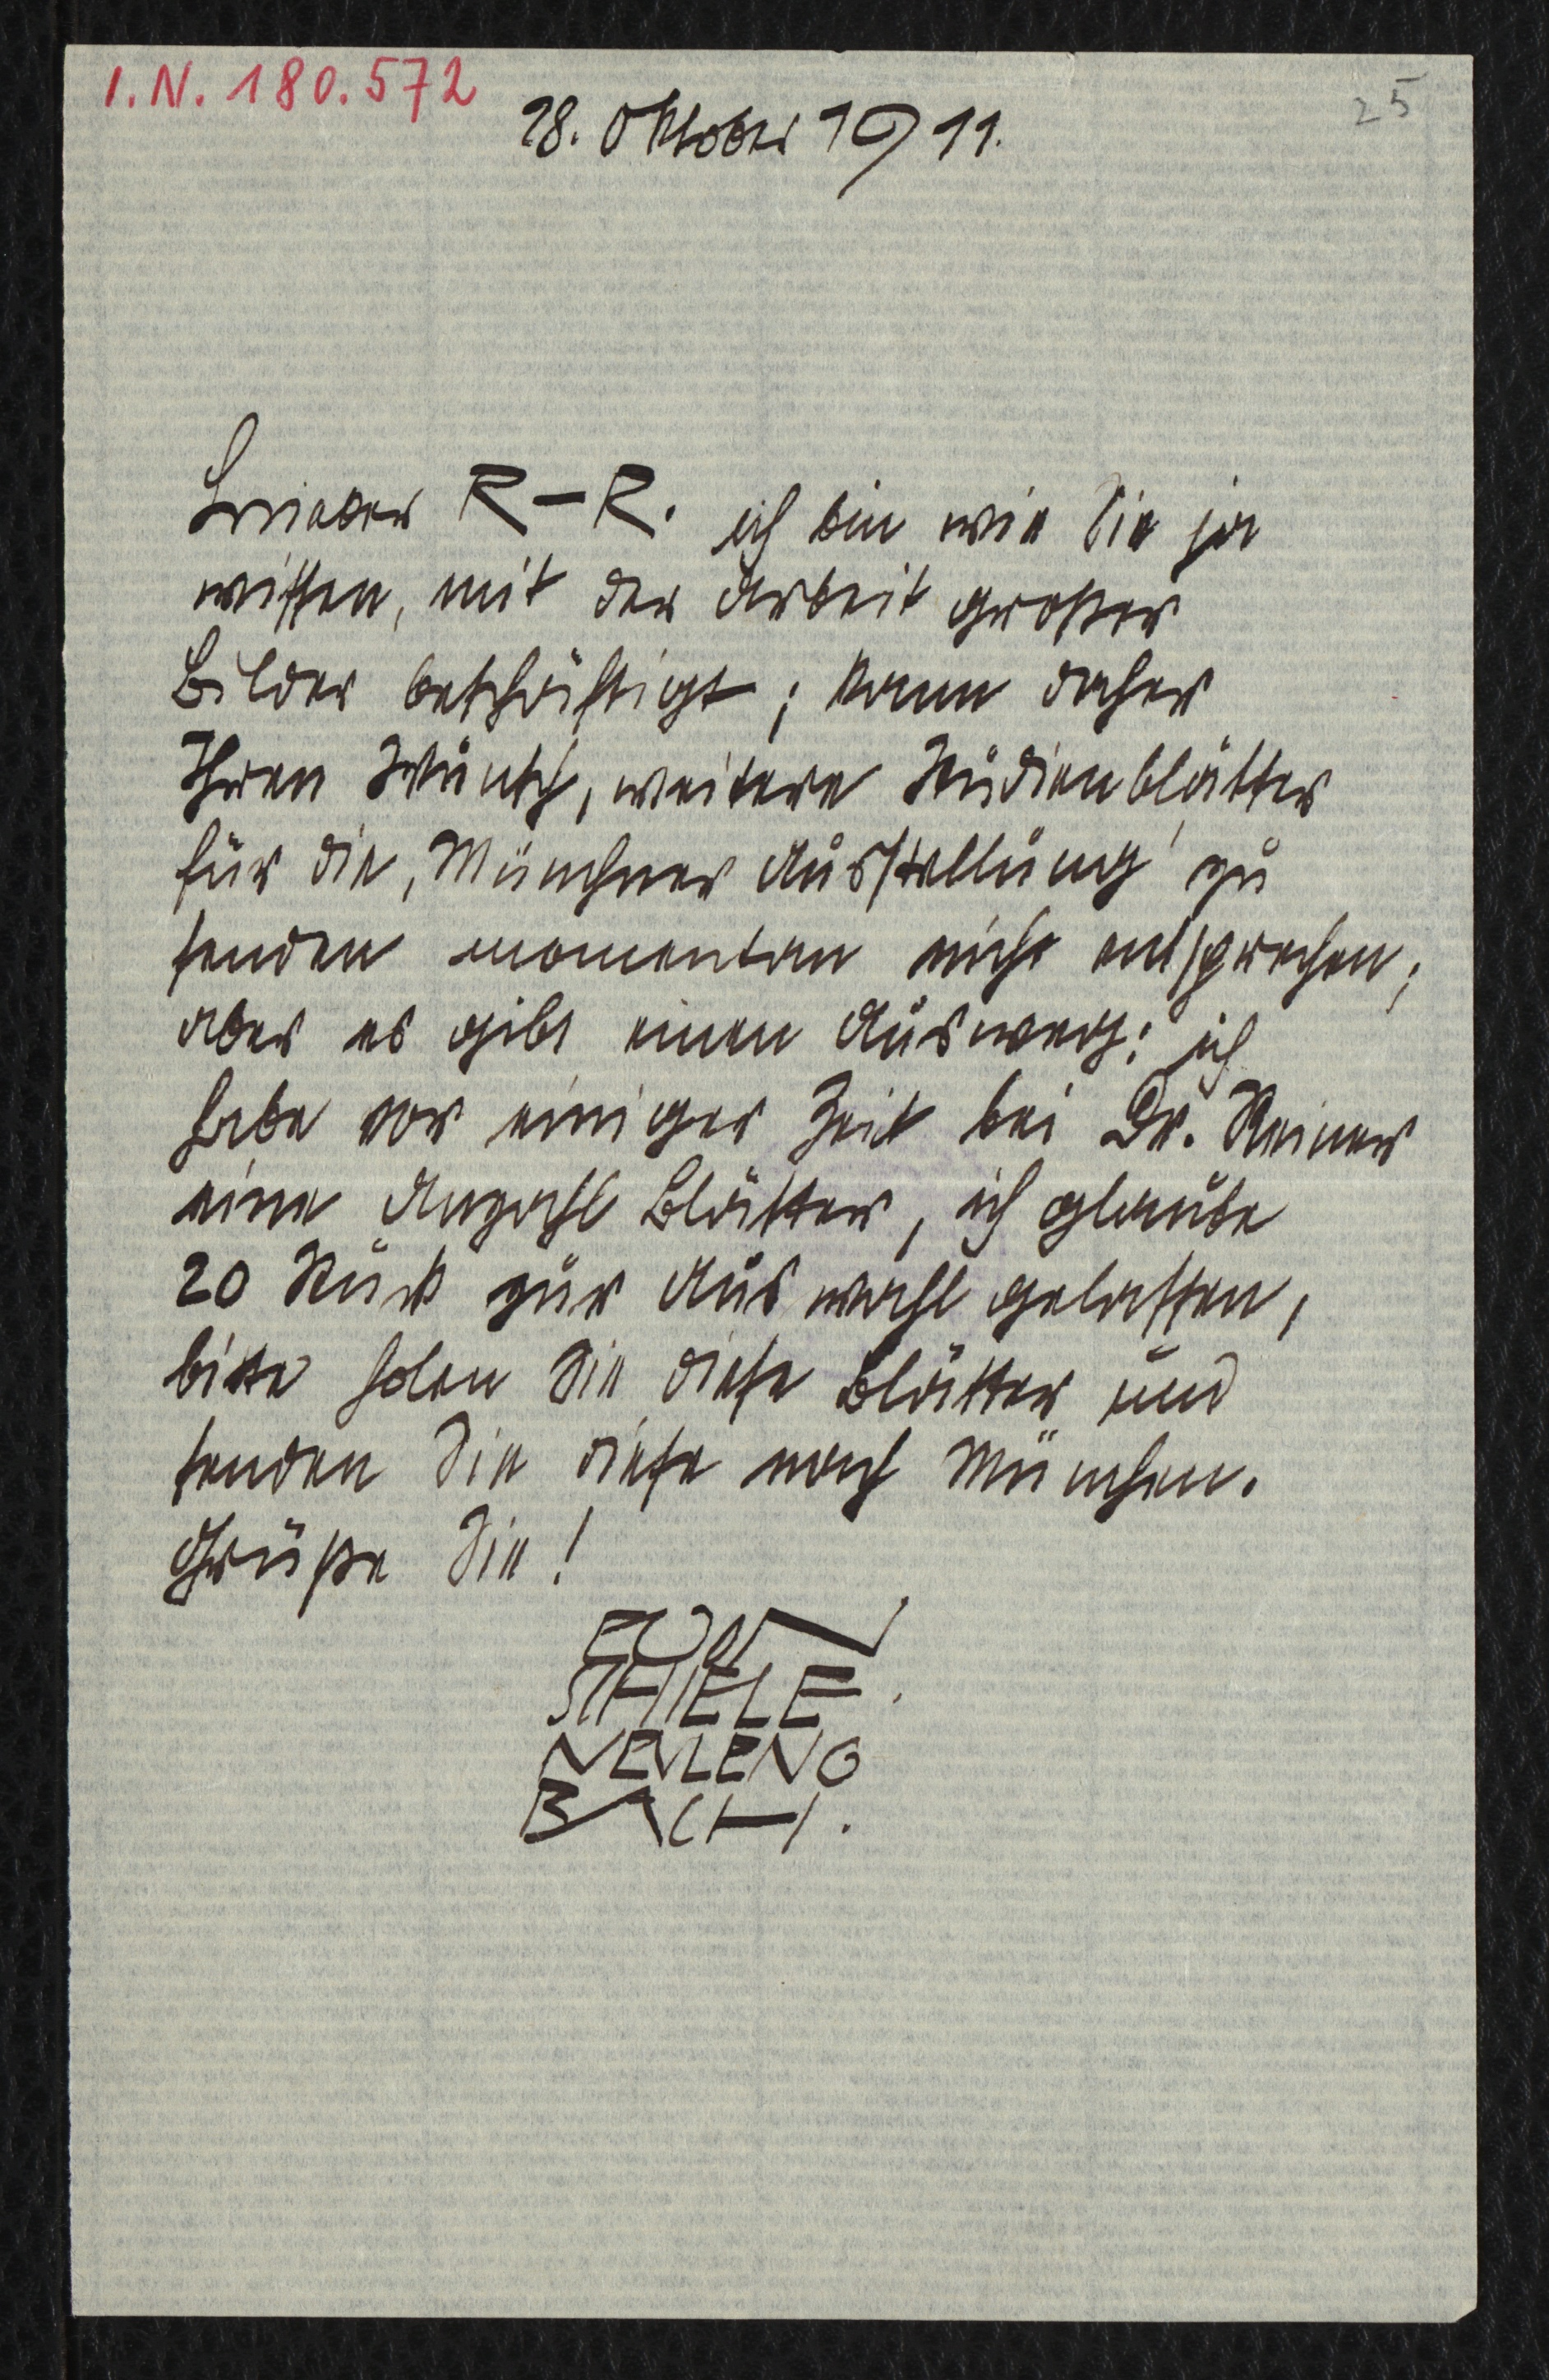 I.N. 180.572
25
28. Oktober 1911.
Lieber R–R. ich bin wie Sie ja
wissen, mit der Arbeit großer
Bilder beschäftigt; kann daher
Ihren Wunsch, weitere Studienblätter
für die, Münchner Ausstellung' zu
senden momentan nicht entsprechen;
aber es gibt einen Ausweg: ich
habe vor einiger Zeit bei Dr. Reiner
eine Anzahl Blätter, ich glaube
20 Stück zur Auswahl gelassen,
bitte holen Sie diese Blätter und
senden Sie diese nach München.
Grüße Sie!
EGON
SCHIELE.
NEULENG
BACH.